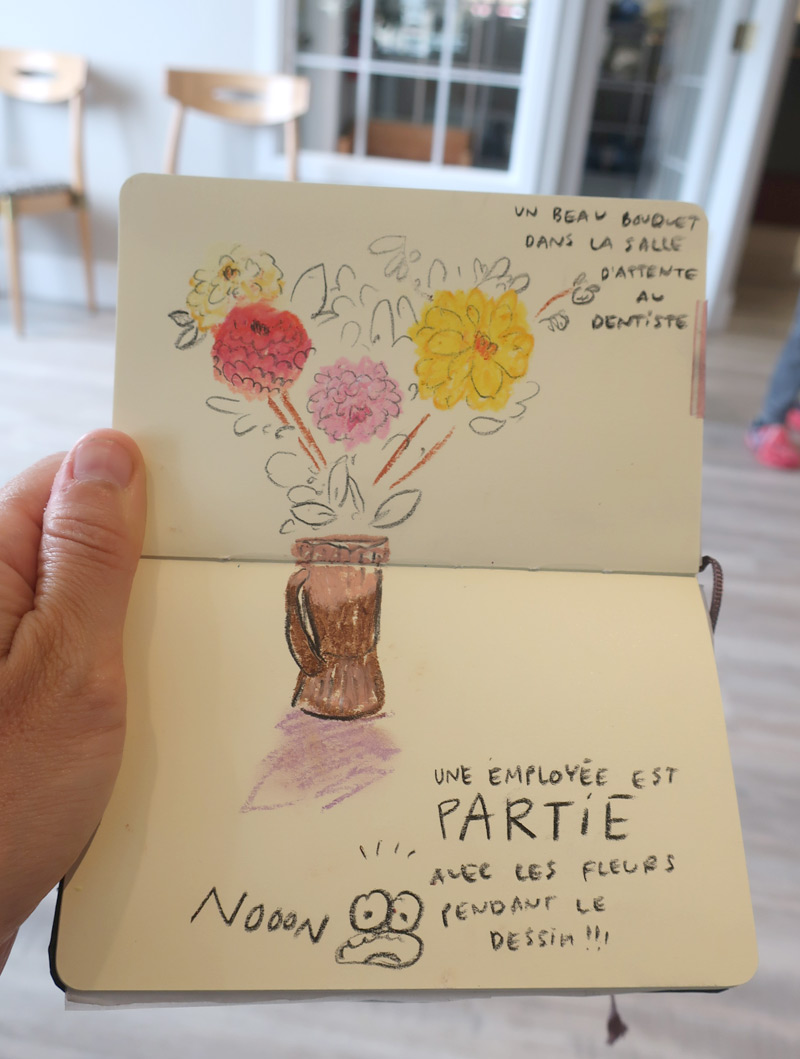 UN BEAU BOUQUET
DANS LA SALLE
D'ATTENTE
AU
DENTISTE
UNE EMPLOYÉE EST
PARTIE
AVEC LES FLEURS
PENDANT LE
DESSIN !!!
NOOON